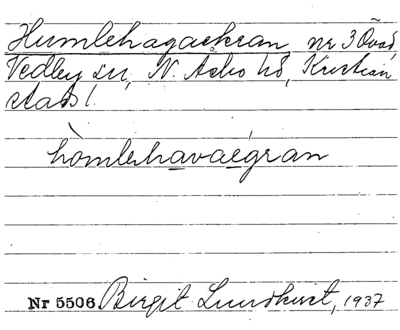 Humlehagaekran, nr 3 Övad,
Vedby sn, N. Åsbo hd, Kristian
stads l.
hòmlehavaégran
Nr 5506 Birgit Lundkvist, 1937